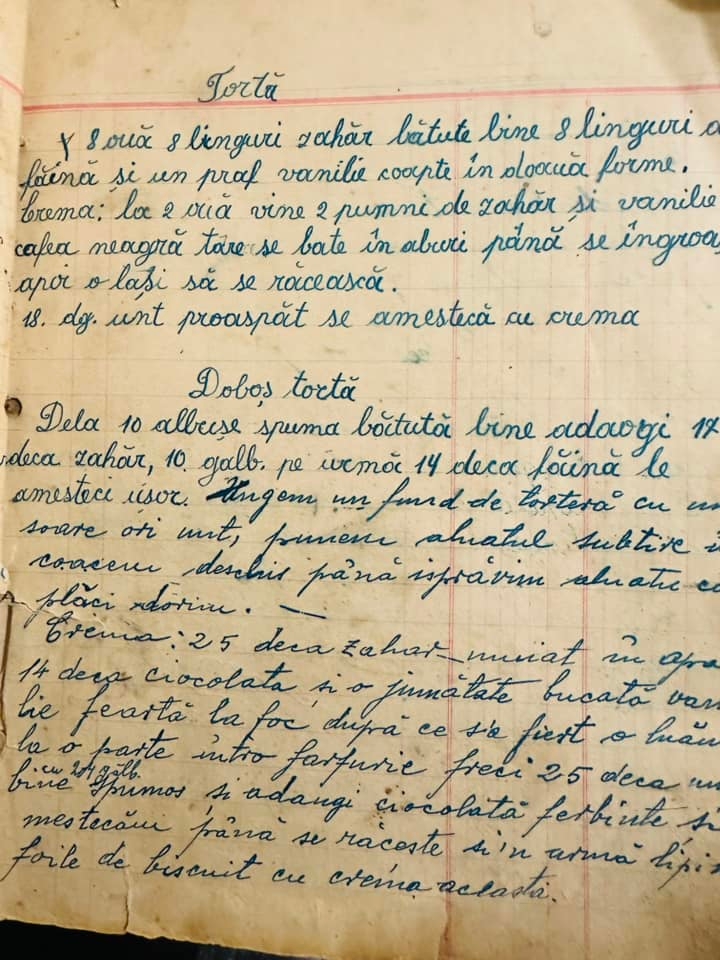 Tortă
8 ouă 8 linguri zahăr bătute bine 8 linguri
făină și un praf vanilie coapte în doouă forme.
Crema: la 2 ouă vine 2 pumni de zahăr și vanilie
cafea neagră tare se bate în aburi până se îngroa
apoi o lași să se răcească.
18. dg. unt proaspăt se amestecă cu crema
Doboș tortă
Dela 10 albușe spuma bătută bine adaogi 14
deca zahăr, 10 galb. pe urmă 14 deca făină le
amesteci ușor. Ungem un fund de torteră cu un
soare ori unt, punem aluatul subtire
coacem deschis până isprăvim aluatu
plăci dorim. —
Crema: 25 deca zahar muiat în apa
14 deca ciocolata și o jumătate bucată van
lie feartă la foc după ce s'a fiert o luăm
la o parte intro farfurie freci 25 deca un
cu galb.
bine spumos si adaugi ciocolată ferbinte si
mestecăm până se răceste si'n urmă lipi
foile de biscuit cu crema aceasta.